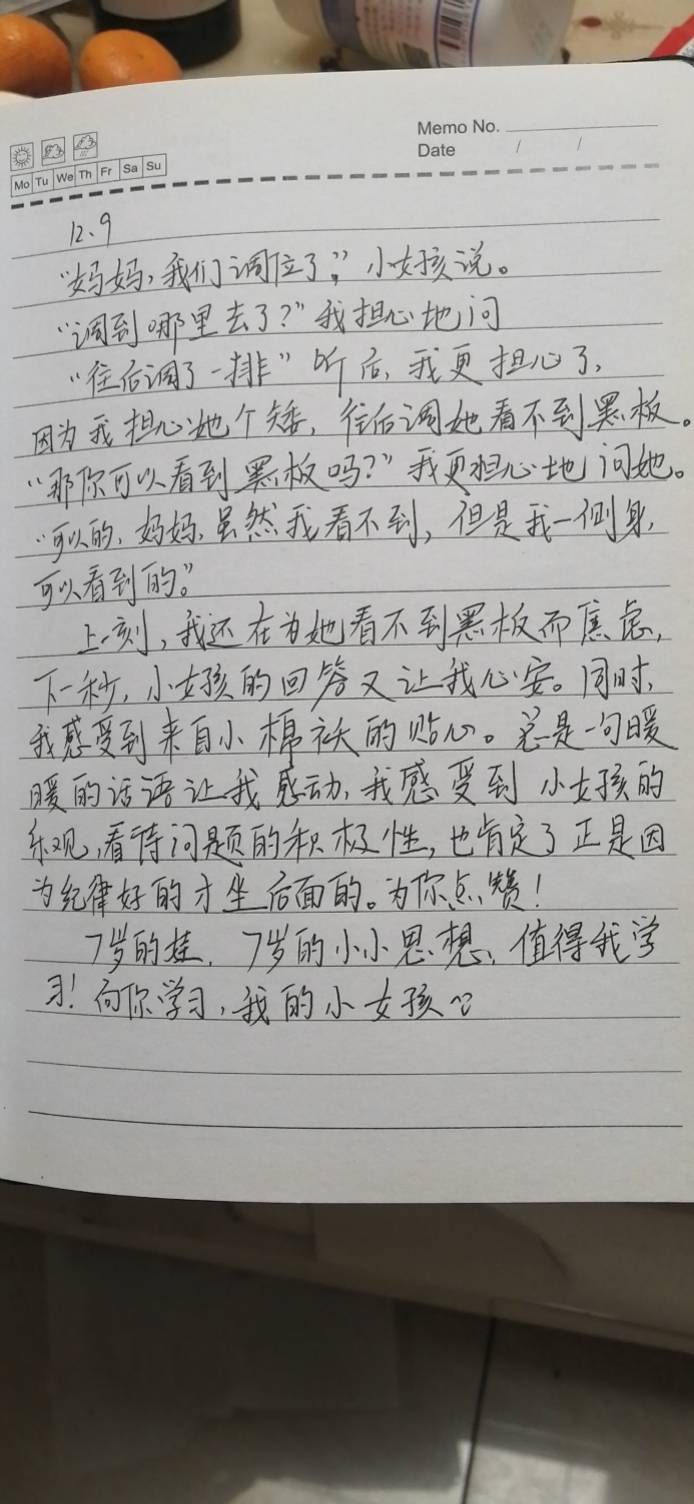 Memo No.
Date / /
Mo Tu We Th Fr Sa Su
12.9
“妈妈,我们调位了。”小女孩说。
“调到哪里去了?”我担心地问
“往后调了一排”听后,我更担心了,
因为我担心她个矮,往后调她看不到黑板。
“那你可以看到黑板吗?”我更担心地问她。
“可以的,妈妈,虽然我看不到,但是我一侧身,
可以看到的。”
上一刻,我还在为她看不到黑板而焦虑,
下一秒,小女孩的回答又让我心安。同时,
我感受到来自小棉袄的贴心。总是一句暖
暖的话语让我感动,我感受到小女孩的
乐观,看待问题的积极性,也肯定了正是因
为纪律好的才坐后面的。为你点赞!
7岁的娃,7岁的小小思想,值得我学
习!向你学习,我的小女孩